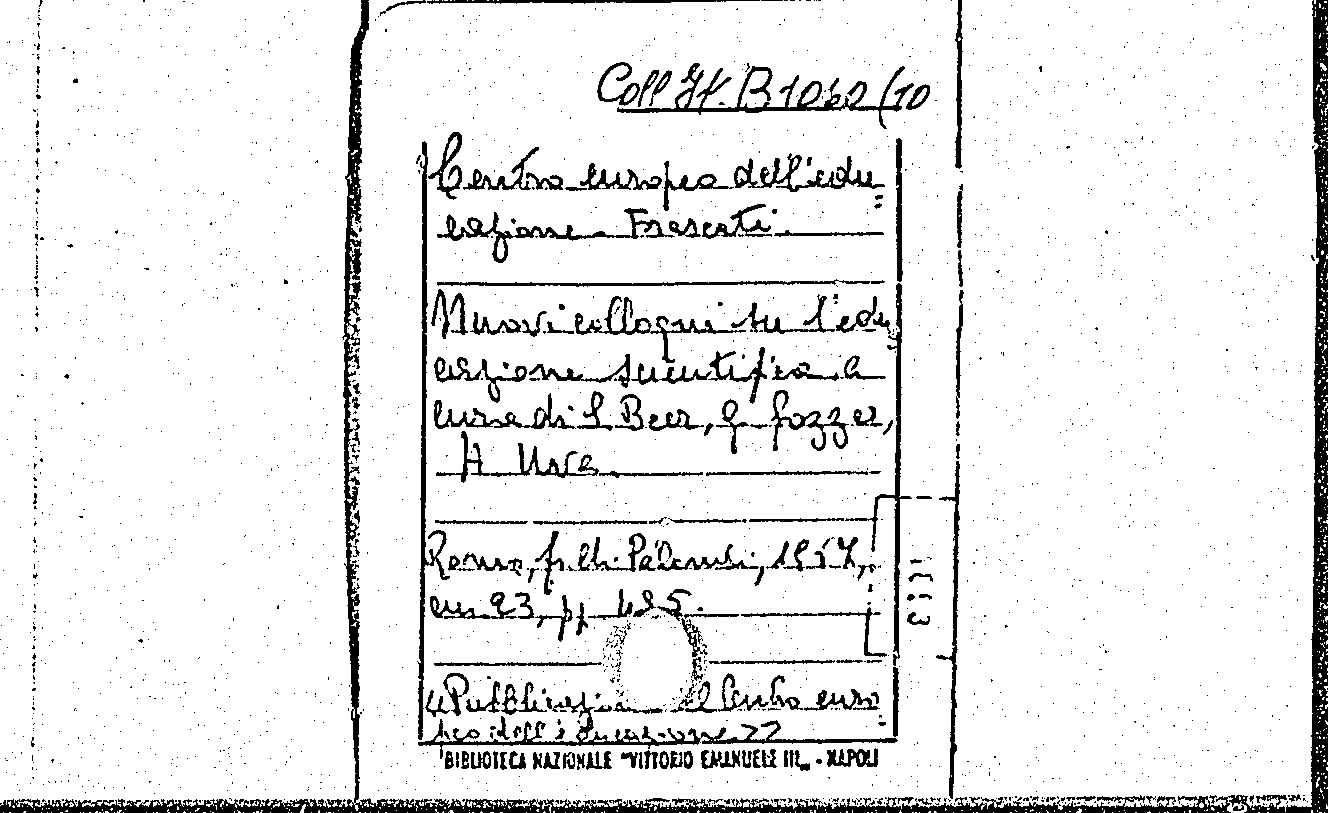 Coll It. B 1060/10
Centro europeo dell'edu=
cazione - Frascati.
Nuovi colloqui su l'edu=
cazione scientifica a
cura di S Beer, G Gozzer,
A Uva.
Roma, f.lli Palombi, 1957,
cm 23, pp. 495.
«Pubblicazioni del Centro euro=
peo dell'educazione»
BIBLIOTECA NAZIONALE "VITTORIO EMANUELE III„ - NAPOLI